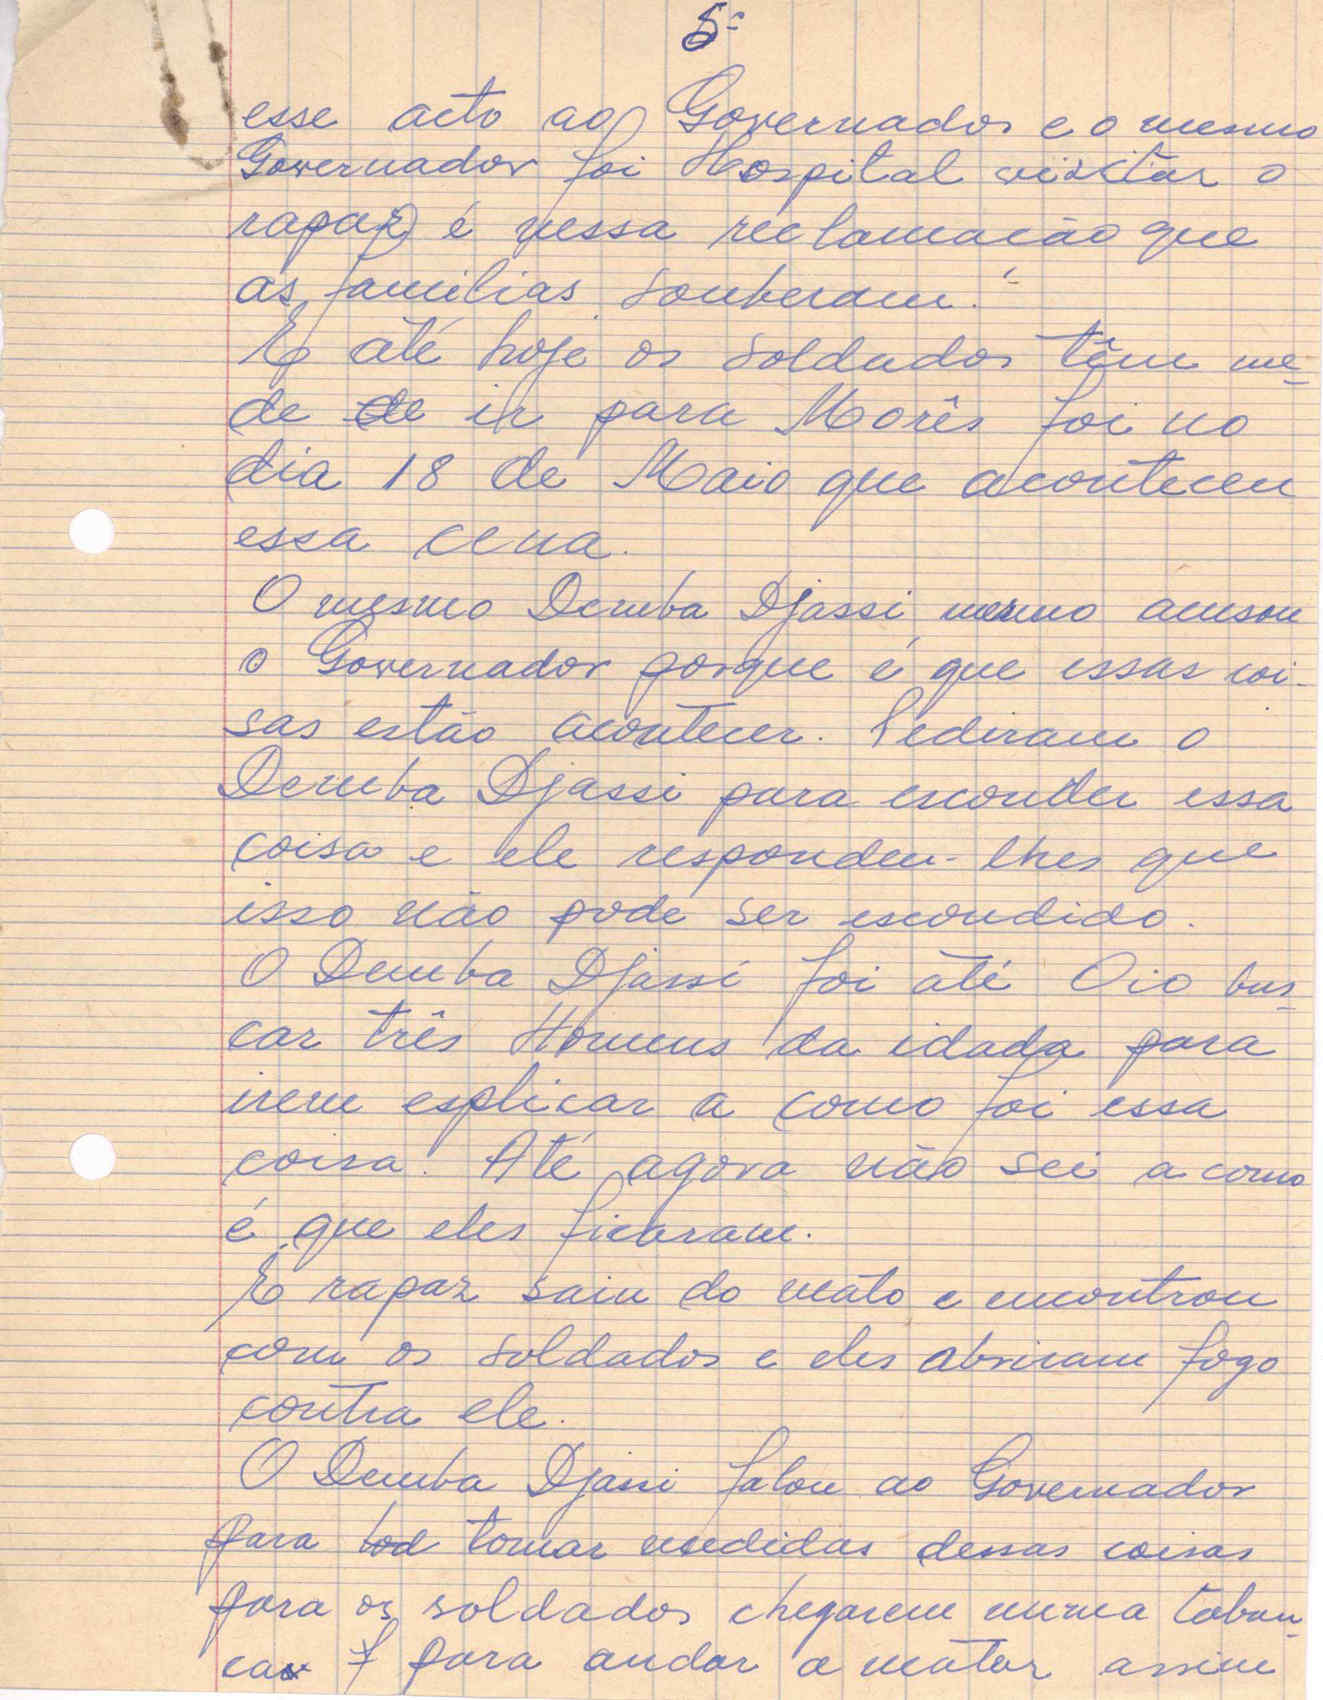 5-
esse acto ao Governador e o mesmo
Governador foi Hospital visitar o
rapaz é nessa reclamação que
as familias souberam.
E até hoje os soldados têm me-
de de ir para Morês foi no
dia 18 de Maio que aconteceu
essa cena.
O mesmo Demba Djassi mesmo acusou
o Governador porque é que essas coi-
sas estão acontecer. Pediram o
Demba Djassi para esconder essa
coisa e ele respondeu-lhes que
isso não pode ser escondido.
O Demba Djassi foi até Oio bus-
car três Homens da idada para
irem esplicar a como foi essa
coisa. Até agora não sei a como
é que eles ficaram.
E rapaz saiu do mato e encontrou
com os soldados e eles abriram fogo
contra ele.
O Demba Djassi falou ao Governador
para tod tomar medidas dessas coisas
para os soldados chegarem numa taban-
ca para andar a matar assim